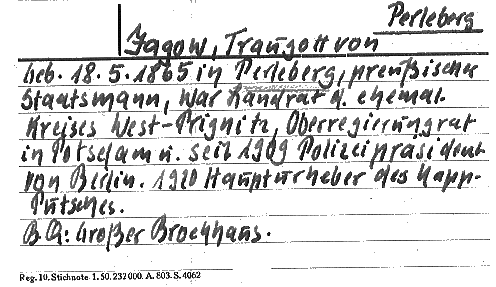 Perleberg
Jagow, Traugott von
Geb. 18. 5. 1865 in Perleberg, preußischer
Staatsmann, war Landrat d. ehemal.
Kreises West-Prignitz, Oberregierungrat
in Potsdam u. seit 1909 Polizeipräsident
von Berlin. 1920 Haupturheber des Kapp-
Putsches.
B.Q: Großer Brockhaus.
Reg. 10. Stichnote 1. 50. 232000. A. 803. S. 4062